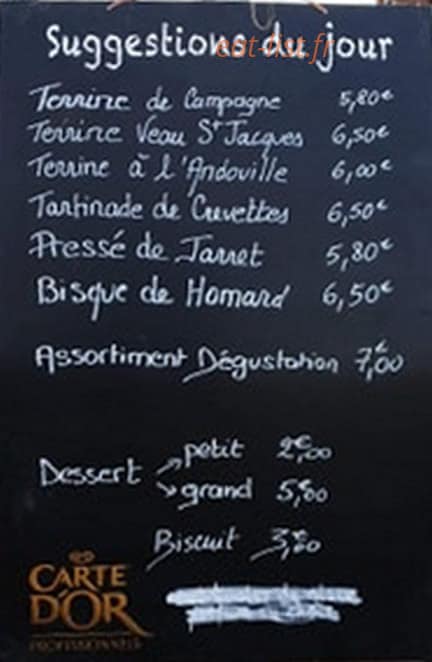 Suggestions du jour
eat-list.fr
Terrine de Campagne 5,80€
Terrine Veau St Jacques 6,50€
Terrine à l'Andouille 6,00€
Tartinade de Crevettes 6,50€
Pressé de Jarret 5,80€
Bisque de Homard 6,50€
Assortiment Dégustation 7,00€
Dessert
petit 2,00€
grand 5,80
Biscuit 3,80
CARTE
D'OR
PROFESSIONNEL